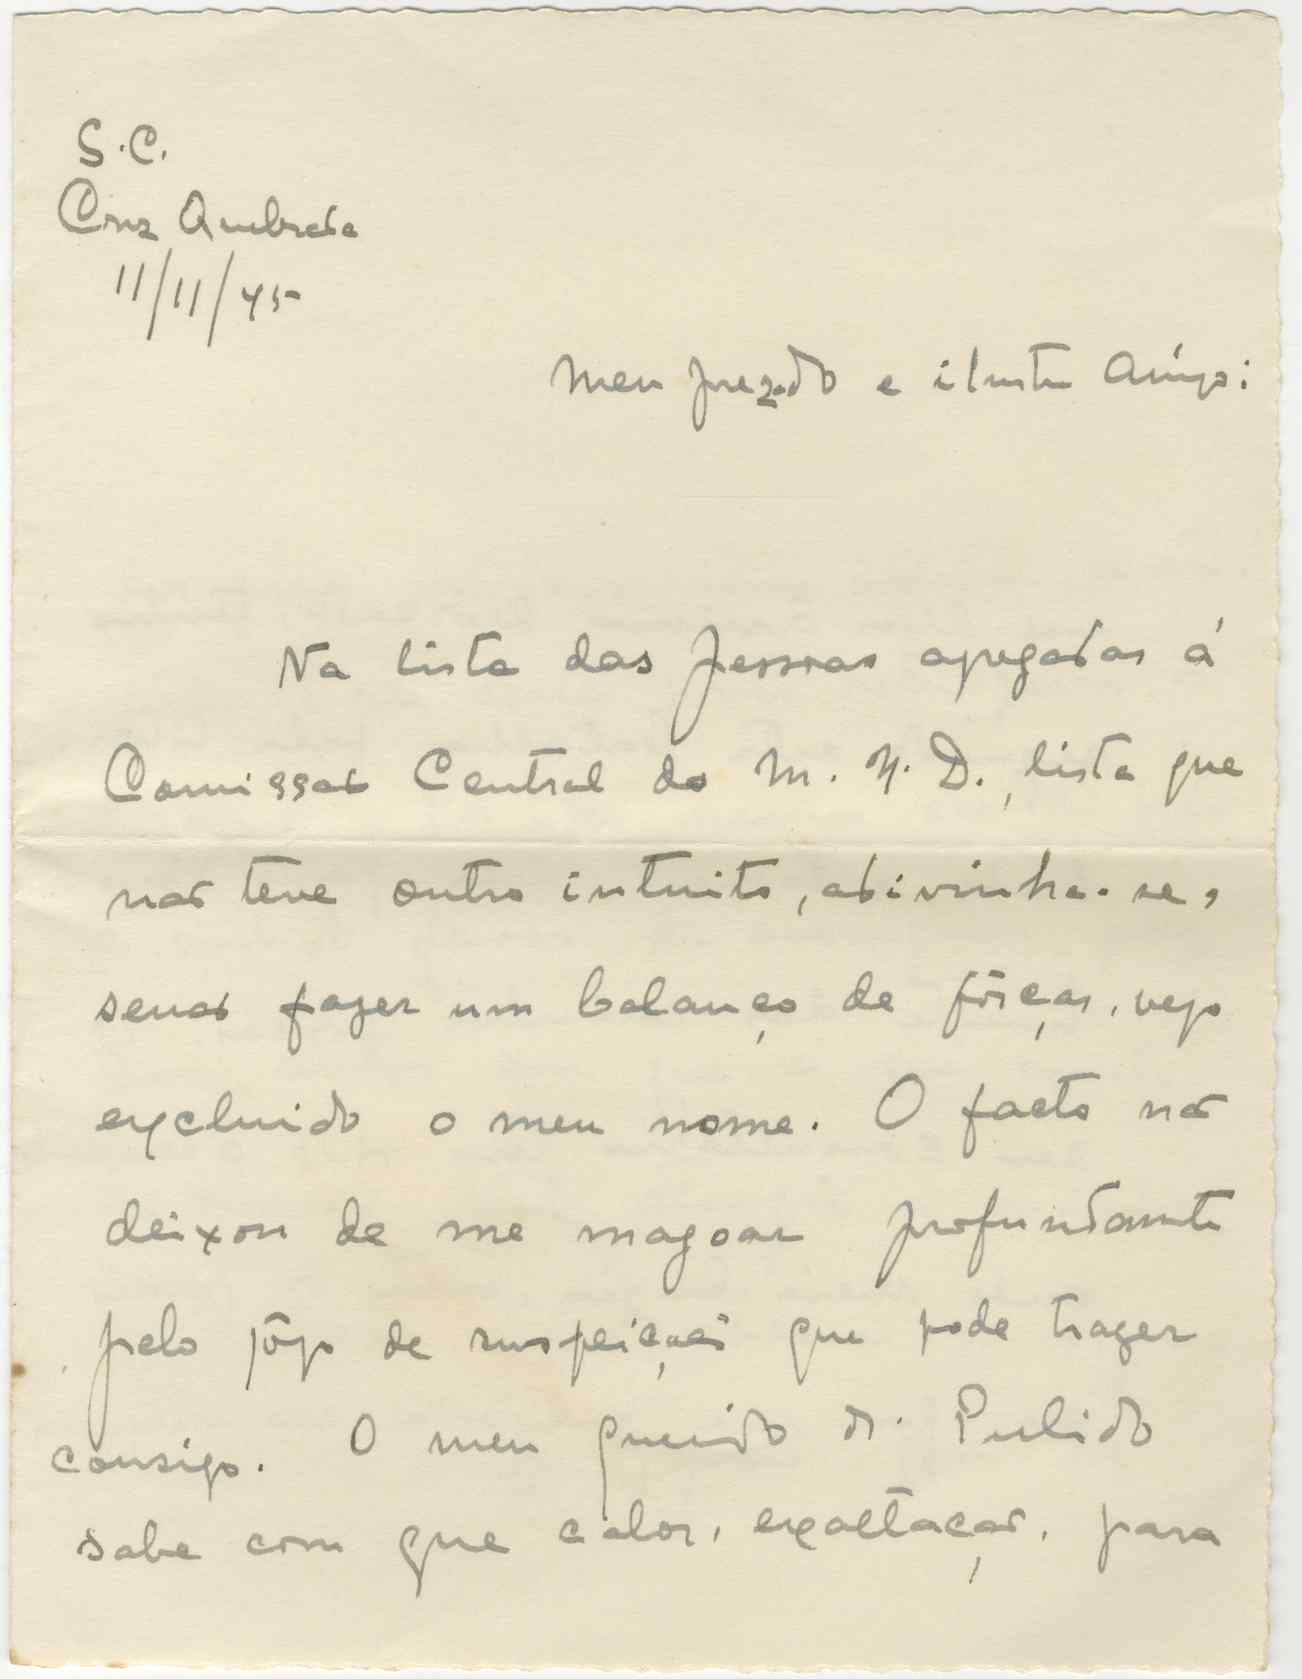 S.C.
Cruz Quebrada
11/11/45
Meu prezado e ilustre Amigo:
Na lista das pessoas agregadas á
Comissão Central do M. U. D., lista que
não teve outro intuito, adivinha-se,
senão fazer um balanço de fôrças, vejo
excluido o meu nome. O facto não
deixou de me magoar profundamente
pelo jôgo de suspeições que pode trazer
consigo. O meu querido dr. Pulido
sabe com que calor, exaltação, para